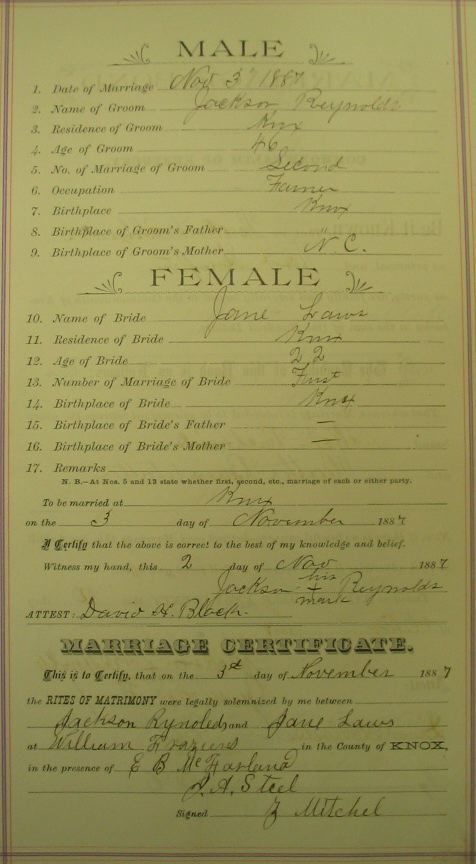 MALE
1. Date of Marriage Nov 3rd 1887
2. Name of Groom Jackson Reynolds
3. Residence of Groom Knx
4. Age of Groom 46
5. No. of Marriage of Groom Second
6. Occupation Farmer
7. Birthplace Knx
8. Birthplace of Groom's Father "
9. Birthplace of Groom's Mother N.C.
FEMALE
10. Name of Bride Jane Laws
11. Residence of Bride Knx
12. Age of Bride 22
13. Number of Marriage of Bride First
14. Birthplace of Bride Knox
15. Birthplace of Bride's Father —
16. Birthplace of Bride's Mother —
17. Remarks
N. B.—At Nos. 5 and 13 state whether first, second, etc., marriage of each or either party.
To be married at Knx
on the 3 day of November 1887
I Certify that the above is correct to the best of my knowledge and belief.
Witness my hand, this 2 day of Nov 1887
Jackson his + mark Reynolds
ATTEST: David H. Black.
MARRIAGE CERTIFICATE.
This is to Certify, that on the 3d day of November 1887
the RITES OF MATRIMONY were legally solemnized by me between
Jackson Rynoleds and Jane Laws
at William Fraziers in the County of KNOX,
in the presence of E B McFarland
J. A. Steel
Signed Mitchel